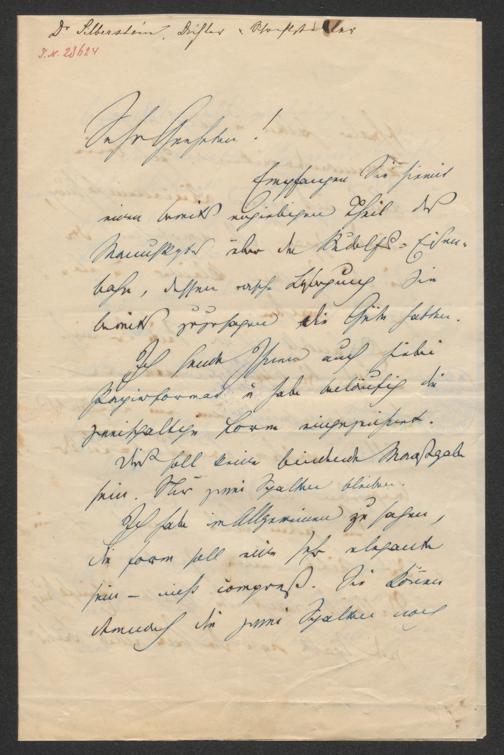 Dr Silberstein, Dichter u Schriftsteller
I.N. 28624
Sehr Geehrter!
Empfangen Sie hiemit
einen bereits ergiebigen Theil des
Manuskripts über die Rudolfs-Eisen-
bahn, dessen rasche Sie
bereits zuzusagen die Güte hatten.
Ich sende Ihnen auch hiebei
Papierformat u habe beiläufig die
zweispaltige Form eingezeichnet.
Dieß soll keine bindende Maaßgabe
sein. Nur zwei Spalten bleiben.
Ich habe im Allgemeinen zu sagen,
die Form soll eine sehr elegante
sein – nicht compreß. Sie können
demnach die zwei Spalten noch